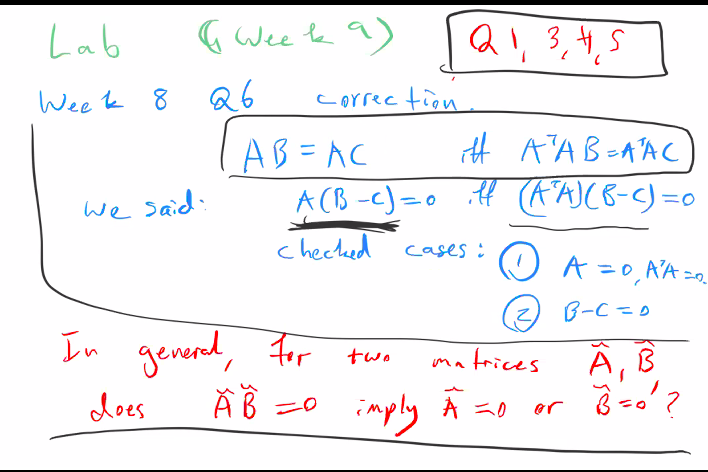 Lab (Week 9)
Q 1, 3, 4, 5
Week 8 Q6 correction.
AB = AC iff AᵀAB = AᵀAC
We said: A(B-C)=0 iff (AᵀA)(B-C)=0
checked cases: ① A = 0, AᵀA = 0.
② B-C = 0
In general, for two matrices Ã, B̃,
does ÃB̃ = 0 imply Ã = 0 or B̃ = 0?